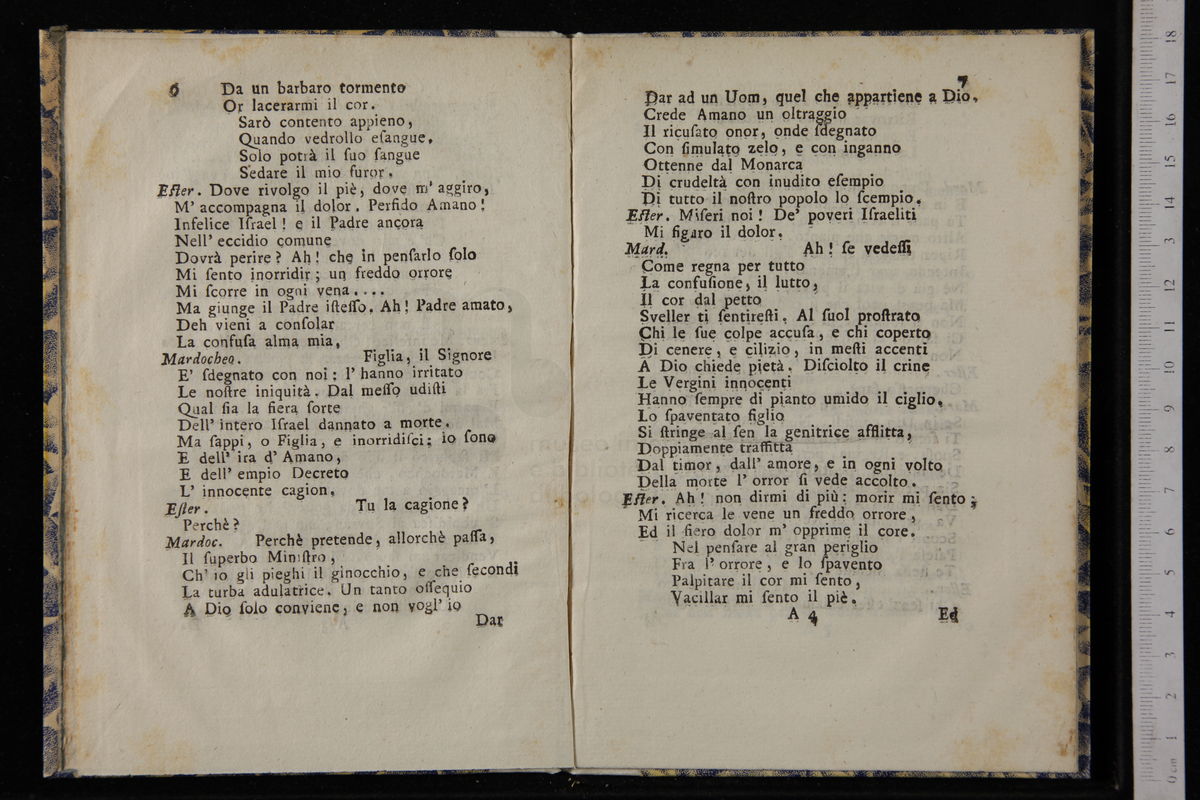 6
Da un barbaro tormento
Or lacerarmi il cor.
Sarò contento appieno,
Quando vedrollo eſangue,
Solo potrà il ſuo ſangue
Sedare il mio furor.
Eſter. Dove rivolgo il piè, dove m' aggiro,
M' accompagna il dolor. Perfido Amano!
Infelice Iſrael! e il Padre ancora
Nell' eccidio comune
Dovrà perire? Ah! che in penſarlo ſolo
Mi ſento inorridir; un freddo orrore
Mi ſcorre in ogni vena....
Ma giunge il Padre iſteſſo. Ah! Padre amato,
Deh vieni a conſolar
La confuſa alma mia.
Mardocheo. Figlia, il Signore
E' ſdegnato con noi: l' hanno irritato
Le noſtre iniquità. Dal meſſo udiſti
Qual ſia la fiera ſorte
Dell' intero Iſrael dannato a morte.
Ma ſappi, o Figlia, e inorridiſci: io ſono
E dell' ira d' Amano,
E dell' empio Decreto
L' innocente cagion.
Eſter. Tu la cagione?
Perchè?
Mardoc. Perchè pretende, allorchè paſſa,
Il ſuperbo Miniſtro,
Ch' io gli pieghi il ginocchio, e che ſecondi
La turba adulatrice. Un tanto oſſequio
A Dio ſolo conviene, e non vogl' io
Dar
7
Dar ad un Uom, quel che appartiene a Dio.
Crede Amano un oltraggio
Il ricuſato onor, onde ſdegnato
Con ſimulato zelo, e con inganno
Ottenne dal Monarca
Di crudeltà con inudito eſempio
Di tutto il noſtro popolo lo ſcempio.
Eſter. Miſeri noi! De' poveri Iſraeliti
Mi figuro il dolor.
Mard. Ah! ſe vedeſſi
Come regna per tutto
La confuſione, il lutto,
Il cor dal petto
Sveller ti ſentireſti. Al ſuol proſtrato
Chi le ſue colpe accuſa, e chi coperto
Di cenere, e cilizio, in meſti accenti
A Dio chiede pietà. Diſciolto il crine
Le Vergini innocenti
Hanno ſempre di pianto umido il ciglio.
Lo ſpaventato figlio
Si ſtringe al ſen la genitrice afflitta,
Doppiamente traffitta
Dal timor, dall' amore, e in ogni volto
Della morte l' orror ſi vede accolto.
Eſter. Ah! non dirmi di più: morir mi ſento;
Mi ricerca le vene un freddo orrore,
Ed il fiero dolor m' opprime il core.
Nel penſare al gran periglio
Fra l' orrore, e lo ſpavento
Palpitare il cor mi ſento,
Vacillar mi ſento il piè.
A 4 Ed
0 cm 1 2 3 4 5 6 7 8 9 10 11 12 13 14 15 16 17 18